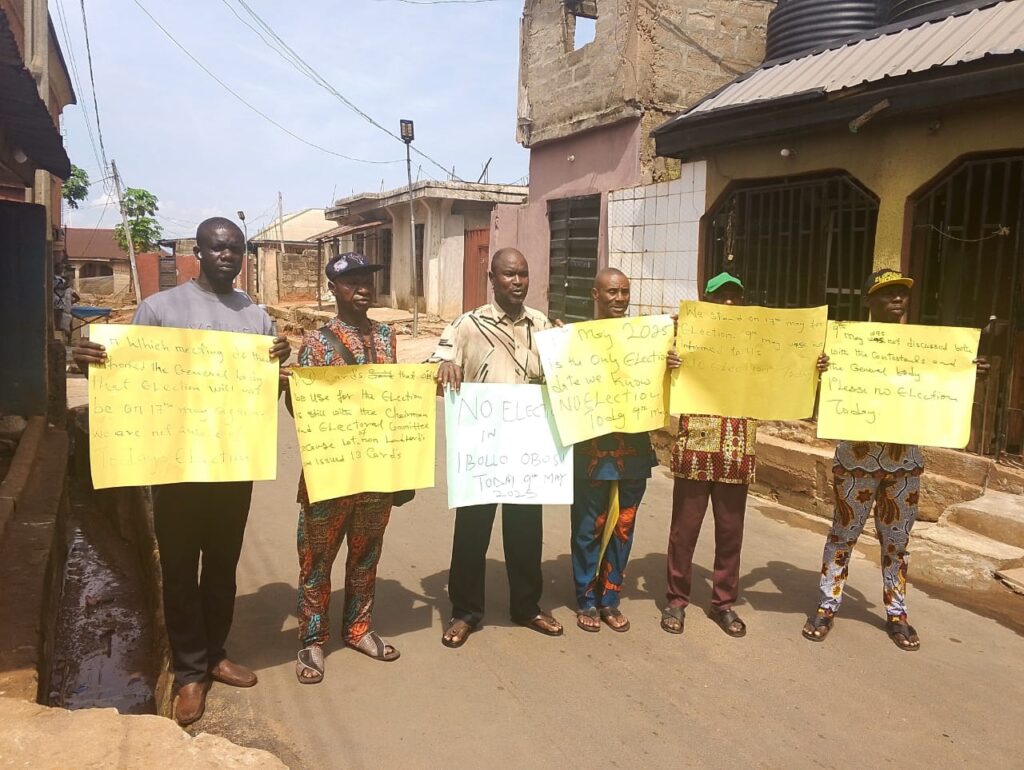 Which meeting do the
informed the General body
that Election will not
be on 17th may again
we are not aware of
Today's Election
Card's that
be Use for the Election
is still with the Chairman
and Electoral Committee
Landlord's
issued 13 Card's
NO ELECTION
IN
IBOLLO OBOSI
TODAY 9th MAY
2025
MAY 2025
is the Only Election
date we know
NO Election
Today 9th M
We stand on 17th may for
Election. 9th may was no
informed to Us
NO Election Today
9th May was not discussed both
with the Contestants and
the General body
Please no Election
Today